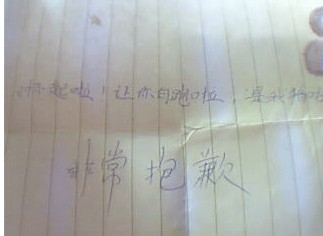 不起啦！让你白跑啦，是我的
非常抱歉